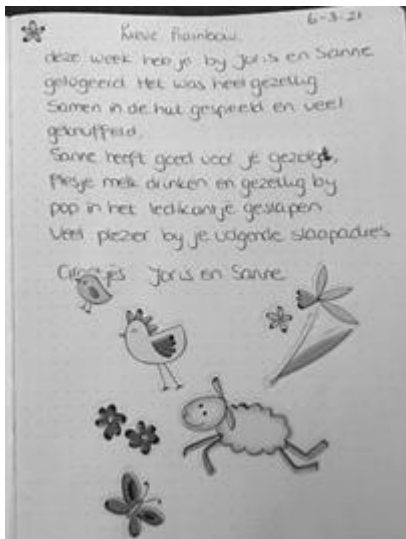 6-3-21
Lieve Rainbow.
deze week heb je by Joris en Sanne
gelogeerd. Het was heel gezellig
Samen in de hut gespeeld en veel
geknuffeld.
Sanne heeft goed voor je gezorgt,
Flesje melk drinken en gezellig by
pop in het ledikantje geslapen
Veel plezier by je volgende slaapadres
Groetjes Joris en Sanne